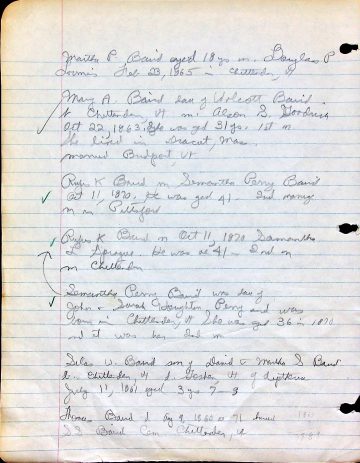 Martha P. Baird aged 18 ys m. Douglas P
Loomis Feb 23, 1865 - Chittenden, Vt
Mary A. Baird dau of Wolcott Baird
b Chittenden, Vt m. Alson S. Goodrich
Oct 22, 1863. She was aged 31 ys. 1st m
She lived in Dracut, Mass.
married Bridport, Vt
Rufus K Baird m Semantha Perry Baird
Oct 11, 1870. He was aged 41 - 2nd marriage
m in Pittsford
Rufus K Baird m Oct 11, 1870 Samantha
L Sprague. He was ae 41 - 2nd m
m Chittenden
Semantha Perry Baird was dau of
John & Sarah Houghton Perry and was
born in Chittenden, Vt She was age 36 in 1870
and it was her 2nd m
Silas W. Baird son of David & Martha S Baird
b. Chittenden, Vt d. Vt of diptheria
July 11, 1861 aged 3 ys 7 - 3
Thomas Baird d Aug 9, 1860 ae 71
Baird Cem Chittenden, Vt